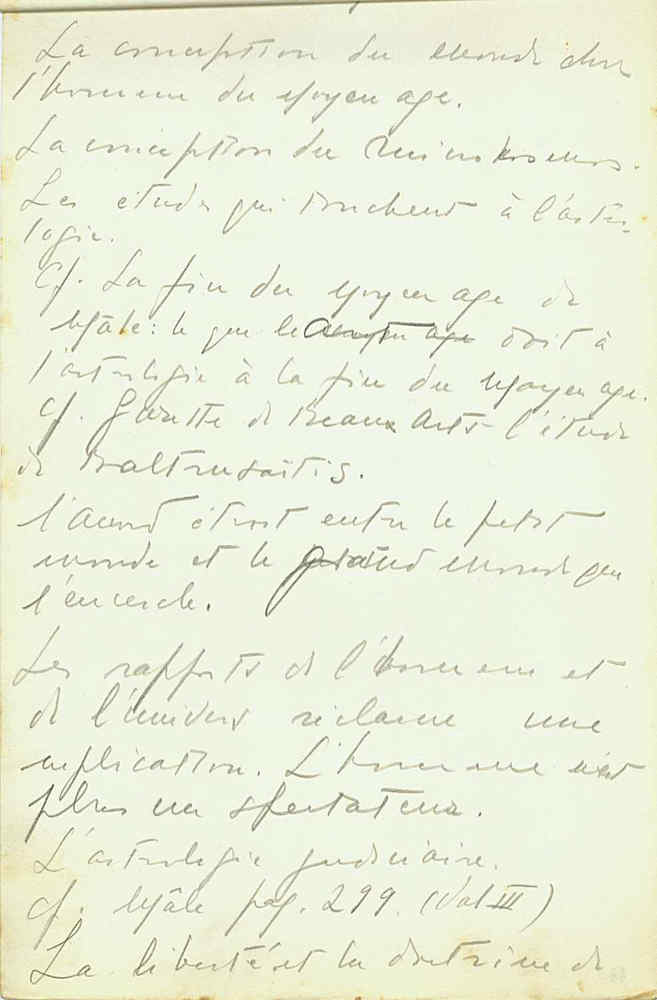 La conception du monde chez
l'homme du Moyen age.
La conception du microkosmos.
Les études qui touchent à l'astro-
logie.
Cf. La fin du Moyen age de
Mâle: ce que le doit à
l'astrologie à la fin du Moyen age.
Cf. Gazette de Beaux Arts l'étude
de Baltrusaitis.
l'accord étroit entre le petit
monde et le grand monde qui
l'encercle.
Les rapports de l'homme et
de l'univers réclame une
explication. L'homme n'est
plus un spectateur.
L'astrologie judiciaire.
cf. Mâle pag. 299. (Vol III)
La liberté et la doctrine de